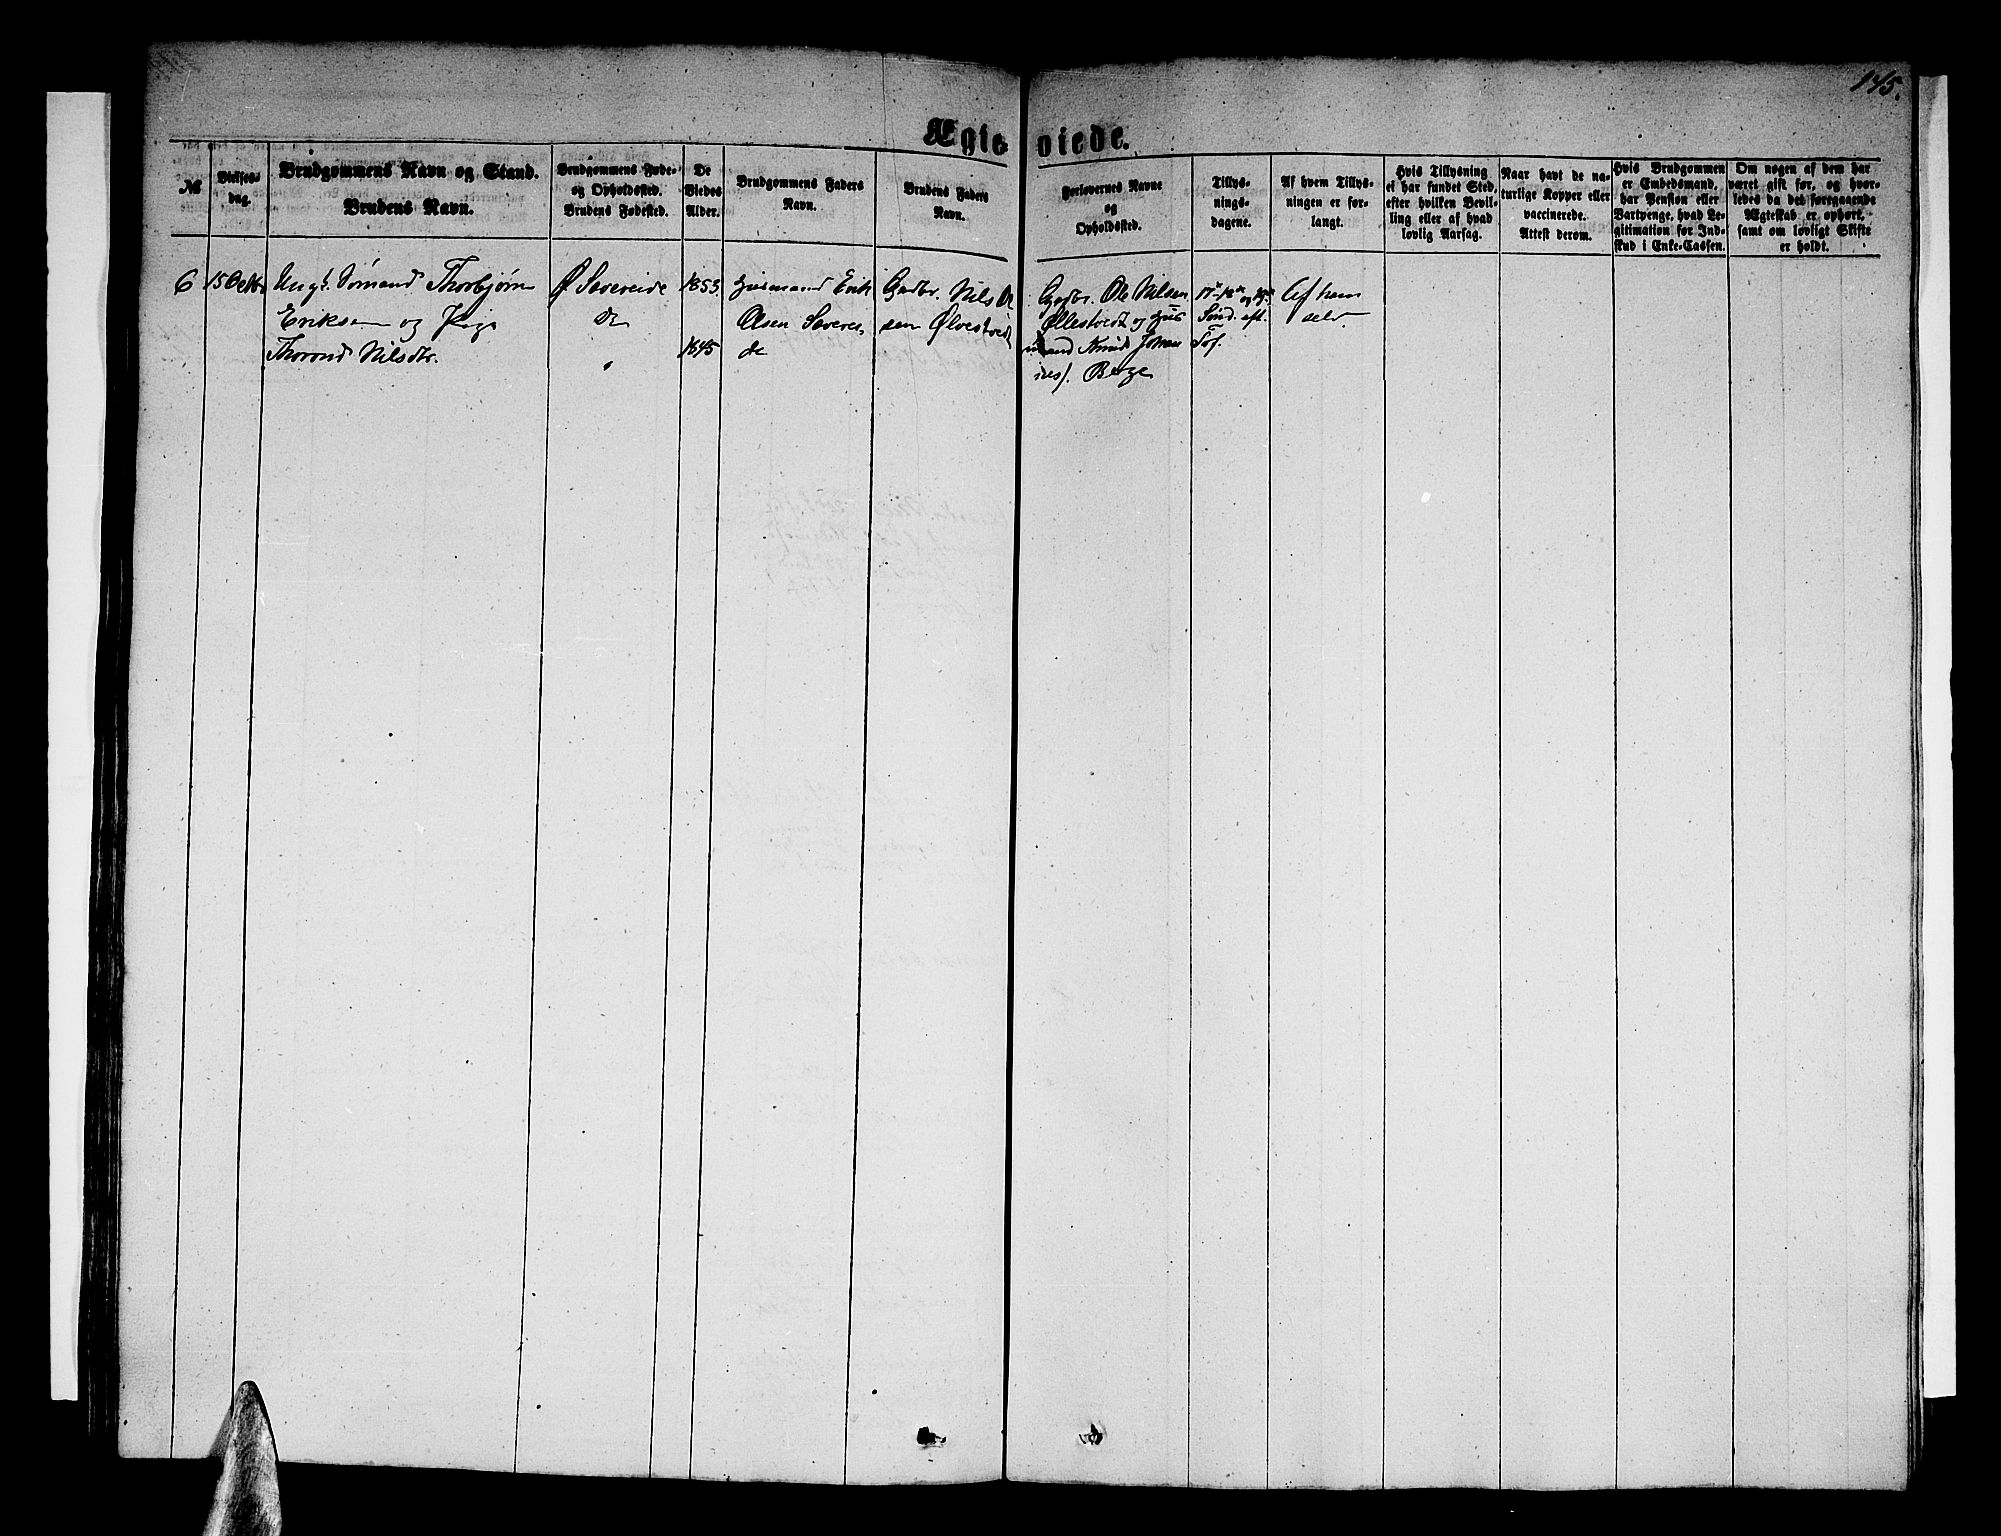 145.
Ægte
viede.
№
Vielses-
dag.
Brudgommens Navn og Stand.
Brudens Navn.
Brudgommens Føde-
og Opholdssted.
Brudens Fødested.
De
Viedes
Alder.
Brudgommens Faders
Navn.
Brudens Faders
Navn.
Forlovernes Navne
og
Opholdssted.
Tillys-
nings-
dagene.
Af hvem Tillys-
ningen er for-
langt.
Hvis Tillysning
ei har fundet Sted,
efter hvilken Bevil-
ling eller af hvad
lovlig Aarsag.
Naar havt de na-
turlige Kopper eller
vaccinerede.
Attest derom.
Hvis Brudgommen
er Embedsmand,
har Pension eller
Vartpenge, hvad Le-
gitimation for Ind-
skud i Enke-Cassen.
Om nogen af dem har
været gift før, og hvor-
ledes da det foregaaende
Ægteskab er ophørt,
samt om lovligt Skifte
er holdt.
6
15 Octbr
Ungk. Sømand Thorbjørn
Eriksen og Pige
Thorond Nilsdtr.
Ø Sævereide
do
"
1853
1845
Husmand Erik
Olsen Sæverei-
de
Gadbr. Nils Ol
sen Ølvestvedt
Gadbr. Ole Nilsen
Øllestvedt og Hus
mand Knud Johan
nes. Berge
17de 18de og 19de
Sønd. eft.
Tref.
Af ham
selv.